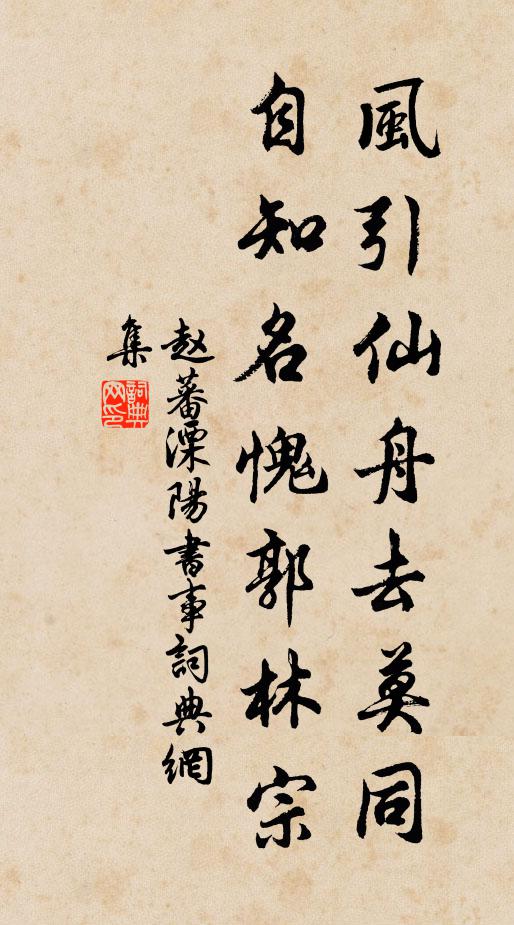 風引仙舟去莫同
自知名愧郭林宗
赵蕃溧陽書事詞典網
集
詞典
网印